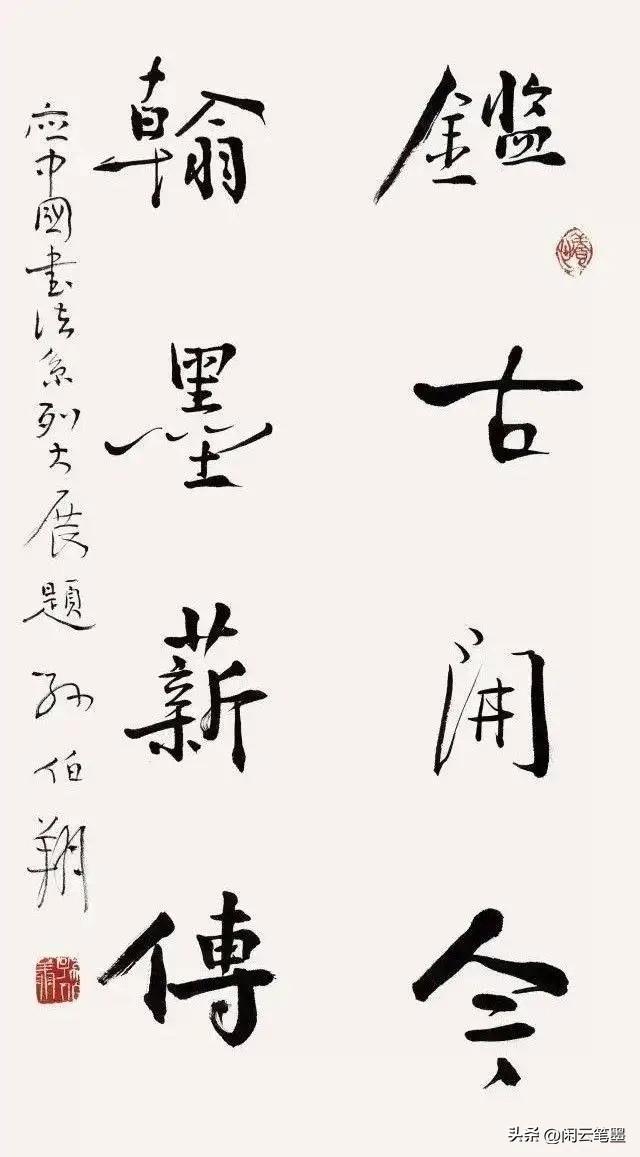 鑑古開今
翰墨薪傳
應中國書法系列大展題 孫伯翔
头条 @闲云笔墨